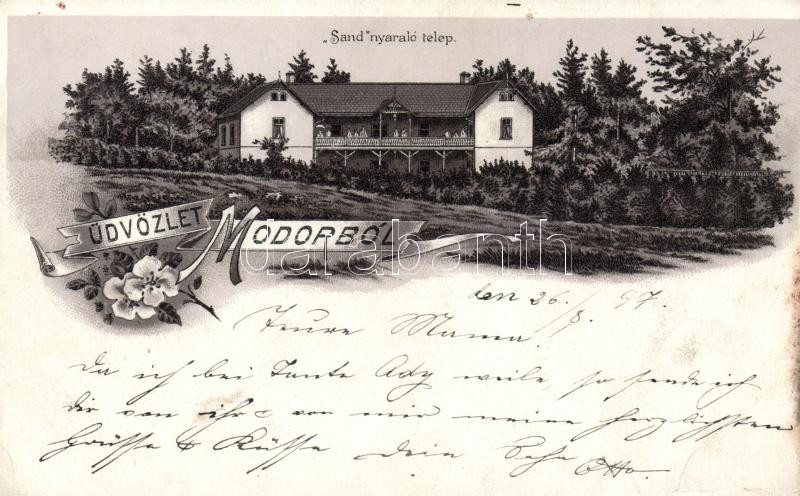 „Sand” nyaraló telep.
ÜDVÖZLET MODORBÓL
darabanth
den 26./8. 97.
Teure Mama!
Da ich bei Tante Ady weile, so sende ich
dir von ihr & von mir meine herzlichsten
Grüsse & Küsse dein Sohn
Otto.